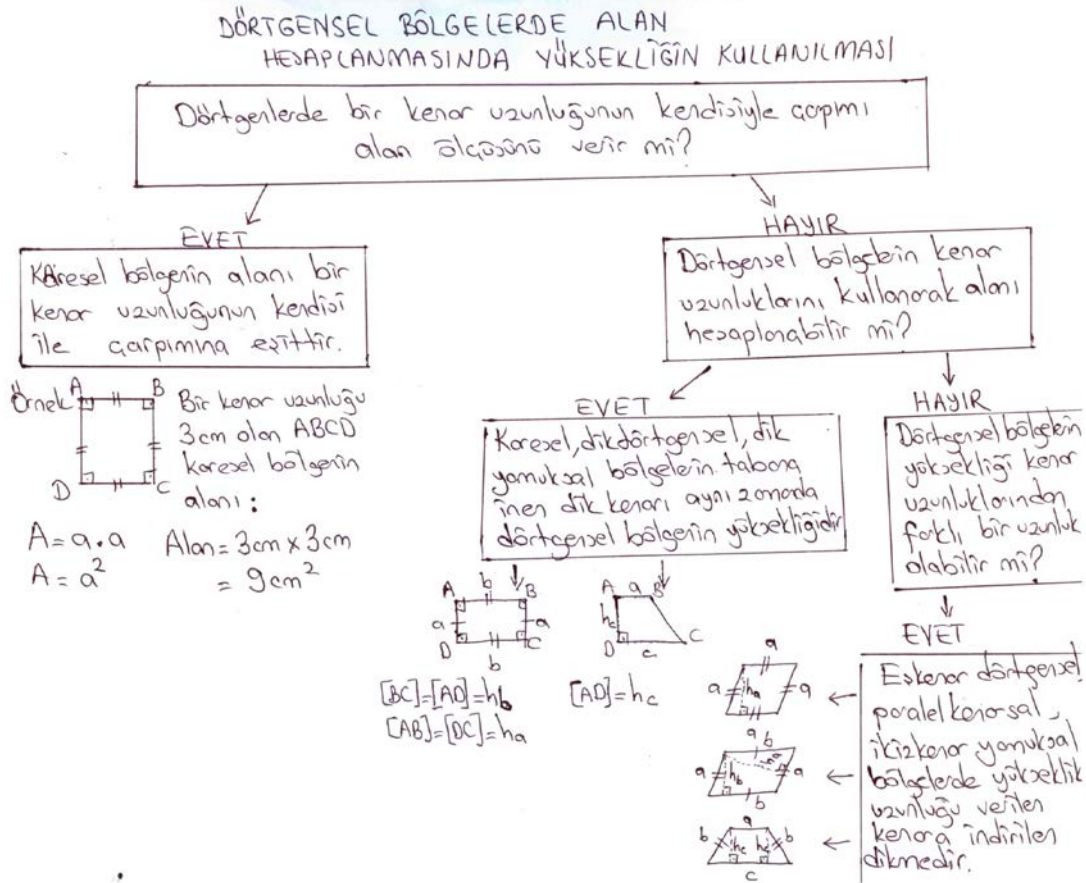 DÖRTGENSEL BÖLGELERDE ALAN
HESAPLANMASINDA YÜKSEKLİĞİN KULLANILMASI
Dörtgenlerde bir kenar uzunluğunun kendisiyle çarpımı
alan ölçüsünü verir mi?
EVET
Karesel bölgenin alanı bir
kenar uzunluğunun kendisi
ile çarpımına eşittir.
Örnek
A B
D C
Bir kenar uzunluğu
3cm olan ABCD
karesel bölgenin
alanı:
A = a.a
A = a²
Alan = 3cm x 3cm
= 9cm²
HAYIR
Dörtgensel bölgelerin kenar
uzunluklarını kullanarak alanı
hesaplanabilir mi?
EVET
Karesel, dikdörtgensel, dik
yamuksal bölgelerin tabana
inen dik kenarı aynı zamanda
dörtgensel bölgenin yüksekliğidir
A b B
a a
D C
b
[BC]=[AD]=hb
[AB]=[DC]=ha
A a B
hc
D c C
[AD]=hc
HAYIR
Dörtgensel bölgelerin
yüksekliği kenar
uzunluklarından
farklı bir uzunluk
olabilir mi?
EVET
Eşkenar dörtgensel,
paralelkenarsal,
ikizkenar yamuksal
bölgelerde yükseklik
uzunluğu verilen
kenara indirilen
dikmedir.
a
a ha a
a
b
a hb ha a
b
a
b hc hc b
c